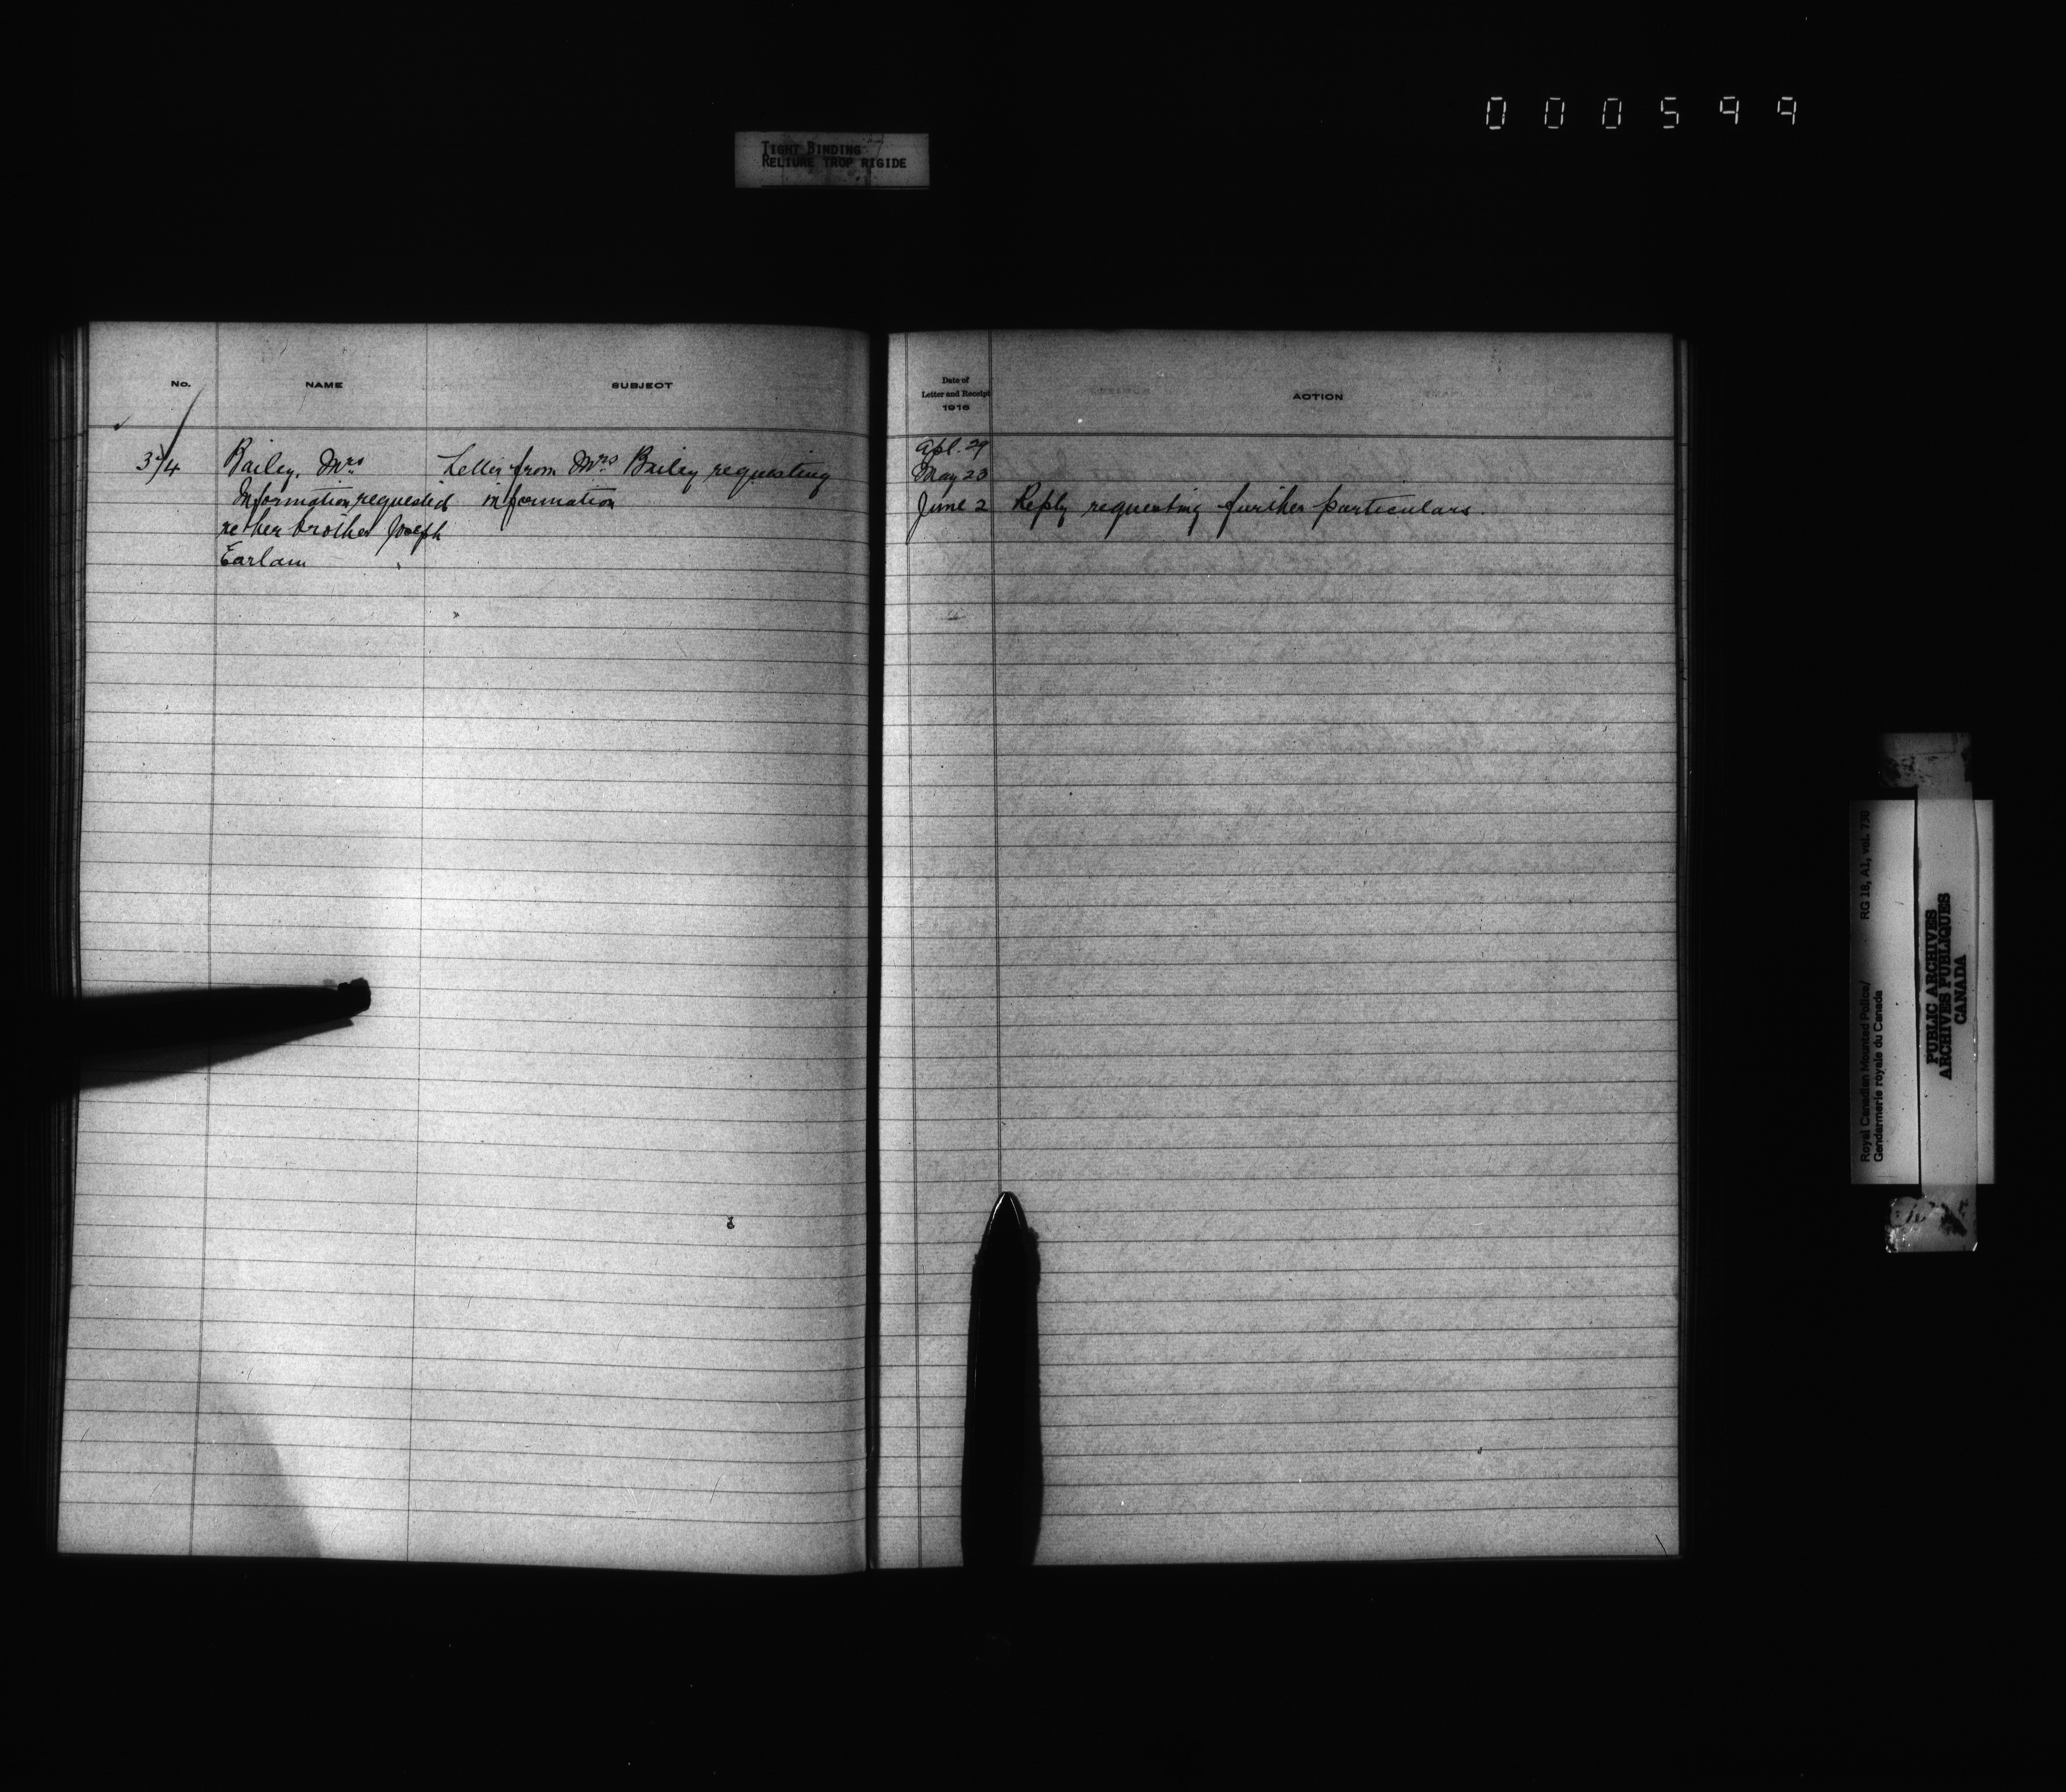 000599
TIGHT BINDING
RELIURE TROP RIGIDE
No. NAME SUBJECT
Date of
Letter and Receipt
1916
ACTION
Apl. 29
Bailey, Mrs Letter from Mrs Bailey requesting May 23
Information requested information June 2 Reply requesting further particulars.
re her brother Joseph
Earlam
Royal Canadian Mounted Police/ RG 18, A1, vol. 730
Gendarmerie royale du Canada
PUBLIC ARCHIVES
ARCHIVES PUBLIQUES
CANADA